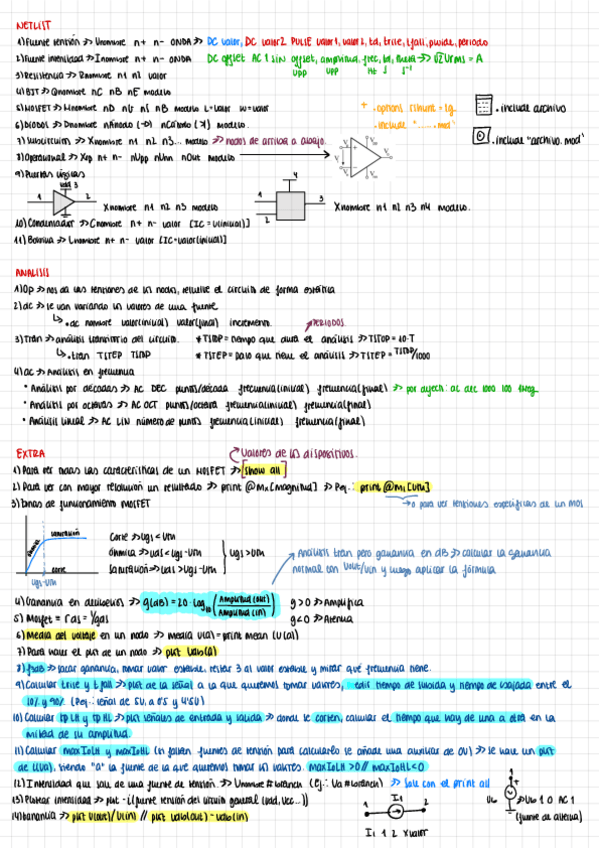 NETLIST
1) Fuente tensión => Vnombre n+ n- ONDA => DC valor, DC valor2 PULSE valor1, valor2, td, trise, tfall, pwide, periodo
2) Fuente intensidad => Inombre n+ n- ONDA DC offset AC 1 sin offset, amplitud, frec, td, theta => √2 Vrms = A
Vpp Vpp Hz s s⁻¹
3) Resistencia => Rnombre n1 n2 valor
4) BJT => Qnombre nC nB nE modelo
5) MOSFET => Mnombre nD nG nS nB modelo L=valor W=valor
+ .options rshunt = 1g
.include archivo
6) DIODOS => Dnombre nÁnodo (→) nCátodo modelo.
.include "......mod"
7) Subcircuitos => Xnombre n1 n2 n3... modelo => nodos de arriba a abajo.
.include "archivo.mod"
8) Operacional => Xop n+ n- nVpp nVnn nOut modelo
9) Puertas lógicas
1 Vdd 3 2 Xnombre n1 n2 n3 modelo
1 2 3 4 Xnombre n1 n2 n3 n4 modelo.
10) Condensador => Cnombre n+ n- valor [IC = V(inicial)]
11) Bobina => Lnombre n+ n- valor [IC=valor(inicial)]
ANALISIS
1) Op => nos da las tensiones de los nodos, resuelve el circuito de forma estática
2) dc => se van variando los valores de una fuente
↳ .dc nombre valor(inicial) valor(final) incremento.
PERIODOS
3) Tran => análisis transitorio del circuito. * TSTOP = tiempo que dura el análisis => TSTOP = 10·T
↳ .tran TSTEP TSTOP * TSTEP = paso que tiene el análisis => TSTEP = TSTOP/1000
4) ac => Análisis en frecuencia
• Análisis por décadas => AC DEC puntos/década frecuencia(inicial) frecuencia(final) => por defecto: ac dec 1000 100
• Análisis por octavas => AC OCT puntos/octava frecuencia(inicial) frecuencia(final)
• Análisis lineal => AC LIN número de puntos frecuencia(inicial) frecuencia(final)
EXTRA
valores de los dispositivos.
1) Para ver todas las características de un MOSFET => [show all]
2) Para ver con mayor resolución un resultado => print @Mx[magnitud] => Pej.: print @M1[vth]
→ para ver tensiones específicas de un MOS
3) Zonas de funcionamiento MOSFET
óhmica saturación corte Vgs-Vth
Corte => Vgs < Vth
óhmica => Vds < Vgs - Vth
saturación => Vds > Vgs - Vth } Vgs > Vth
Análisis tran pero ganancia en dB => calcular la ganancia
normal con Vout/Vin y luego aplicar la fórmula.
4) Ganancia en decibelios => g(dB) = 20 · log₁₀ (Amplitud(out) / Amplitud(in)) g > 0 => Amplifica
5) Mosfet = rds = 1/gds g < 0 => Atenúa
6) Media del voltaje en un nodo => media V(a) = print mean (V(a))
7) Para valer el plot de un nodo => plot vdb(a)
8) f3dB => sacar ganancia, tomar valor estable, restar 3 al valor estable y mirar qué frecuencia tiene.
9) Calcular trise y tfall => plot de la señal a la que queremos tomar valores, este tiempo de subida y tiempo de bajada entre el
10% y 90% (Pej.: señal de 5V, a 0'5 y 4'5V)
10) Calcular tpLH y tpHL => plot señales de entrada y salida => donde se corten, calcular el tiempo que hay de una a otra en la
mitad de su amplitud.
11) Calcular maxIoLH y maxIoHL (si faltan fuentes de tensión para calcularlo se añade una auxiliar de 0V) => se hace un plot
de i(Va), siendo "a" la fuente de la que queremos tomar los valores. maxIoLH > 0 // maxIoHL < 0
12) Intensidad que sale de una fuente de tensión. => Vnombre#branch (Ej.: Va#branch) => Sale con el print all
13) Plotear intensidad => plot -i(fuente tensión del circuito general (Vdd, Vcc...))
14) Ganancia => plot V(out)/V(in) // plot vdb(out) - vdb(in)
1 I1 2
I1 1 2 valor
Vb => Vb 1 0 AC 1
(fuente de alterna)